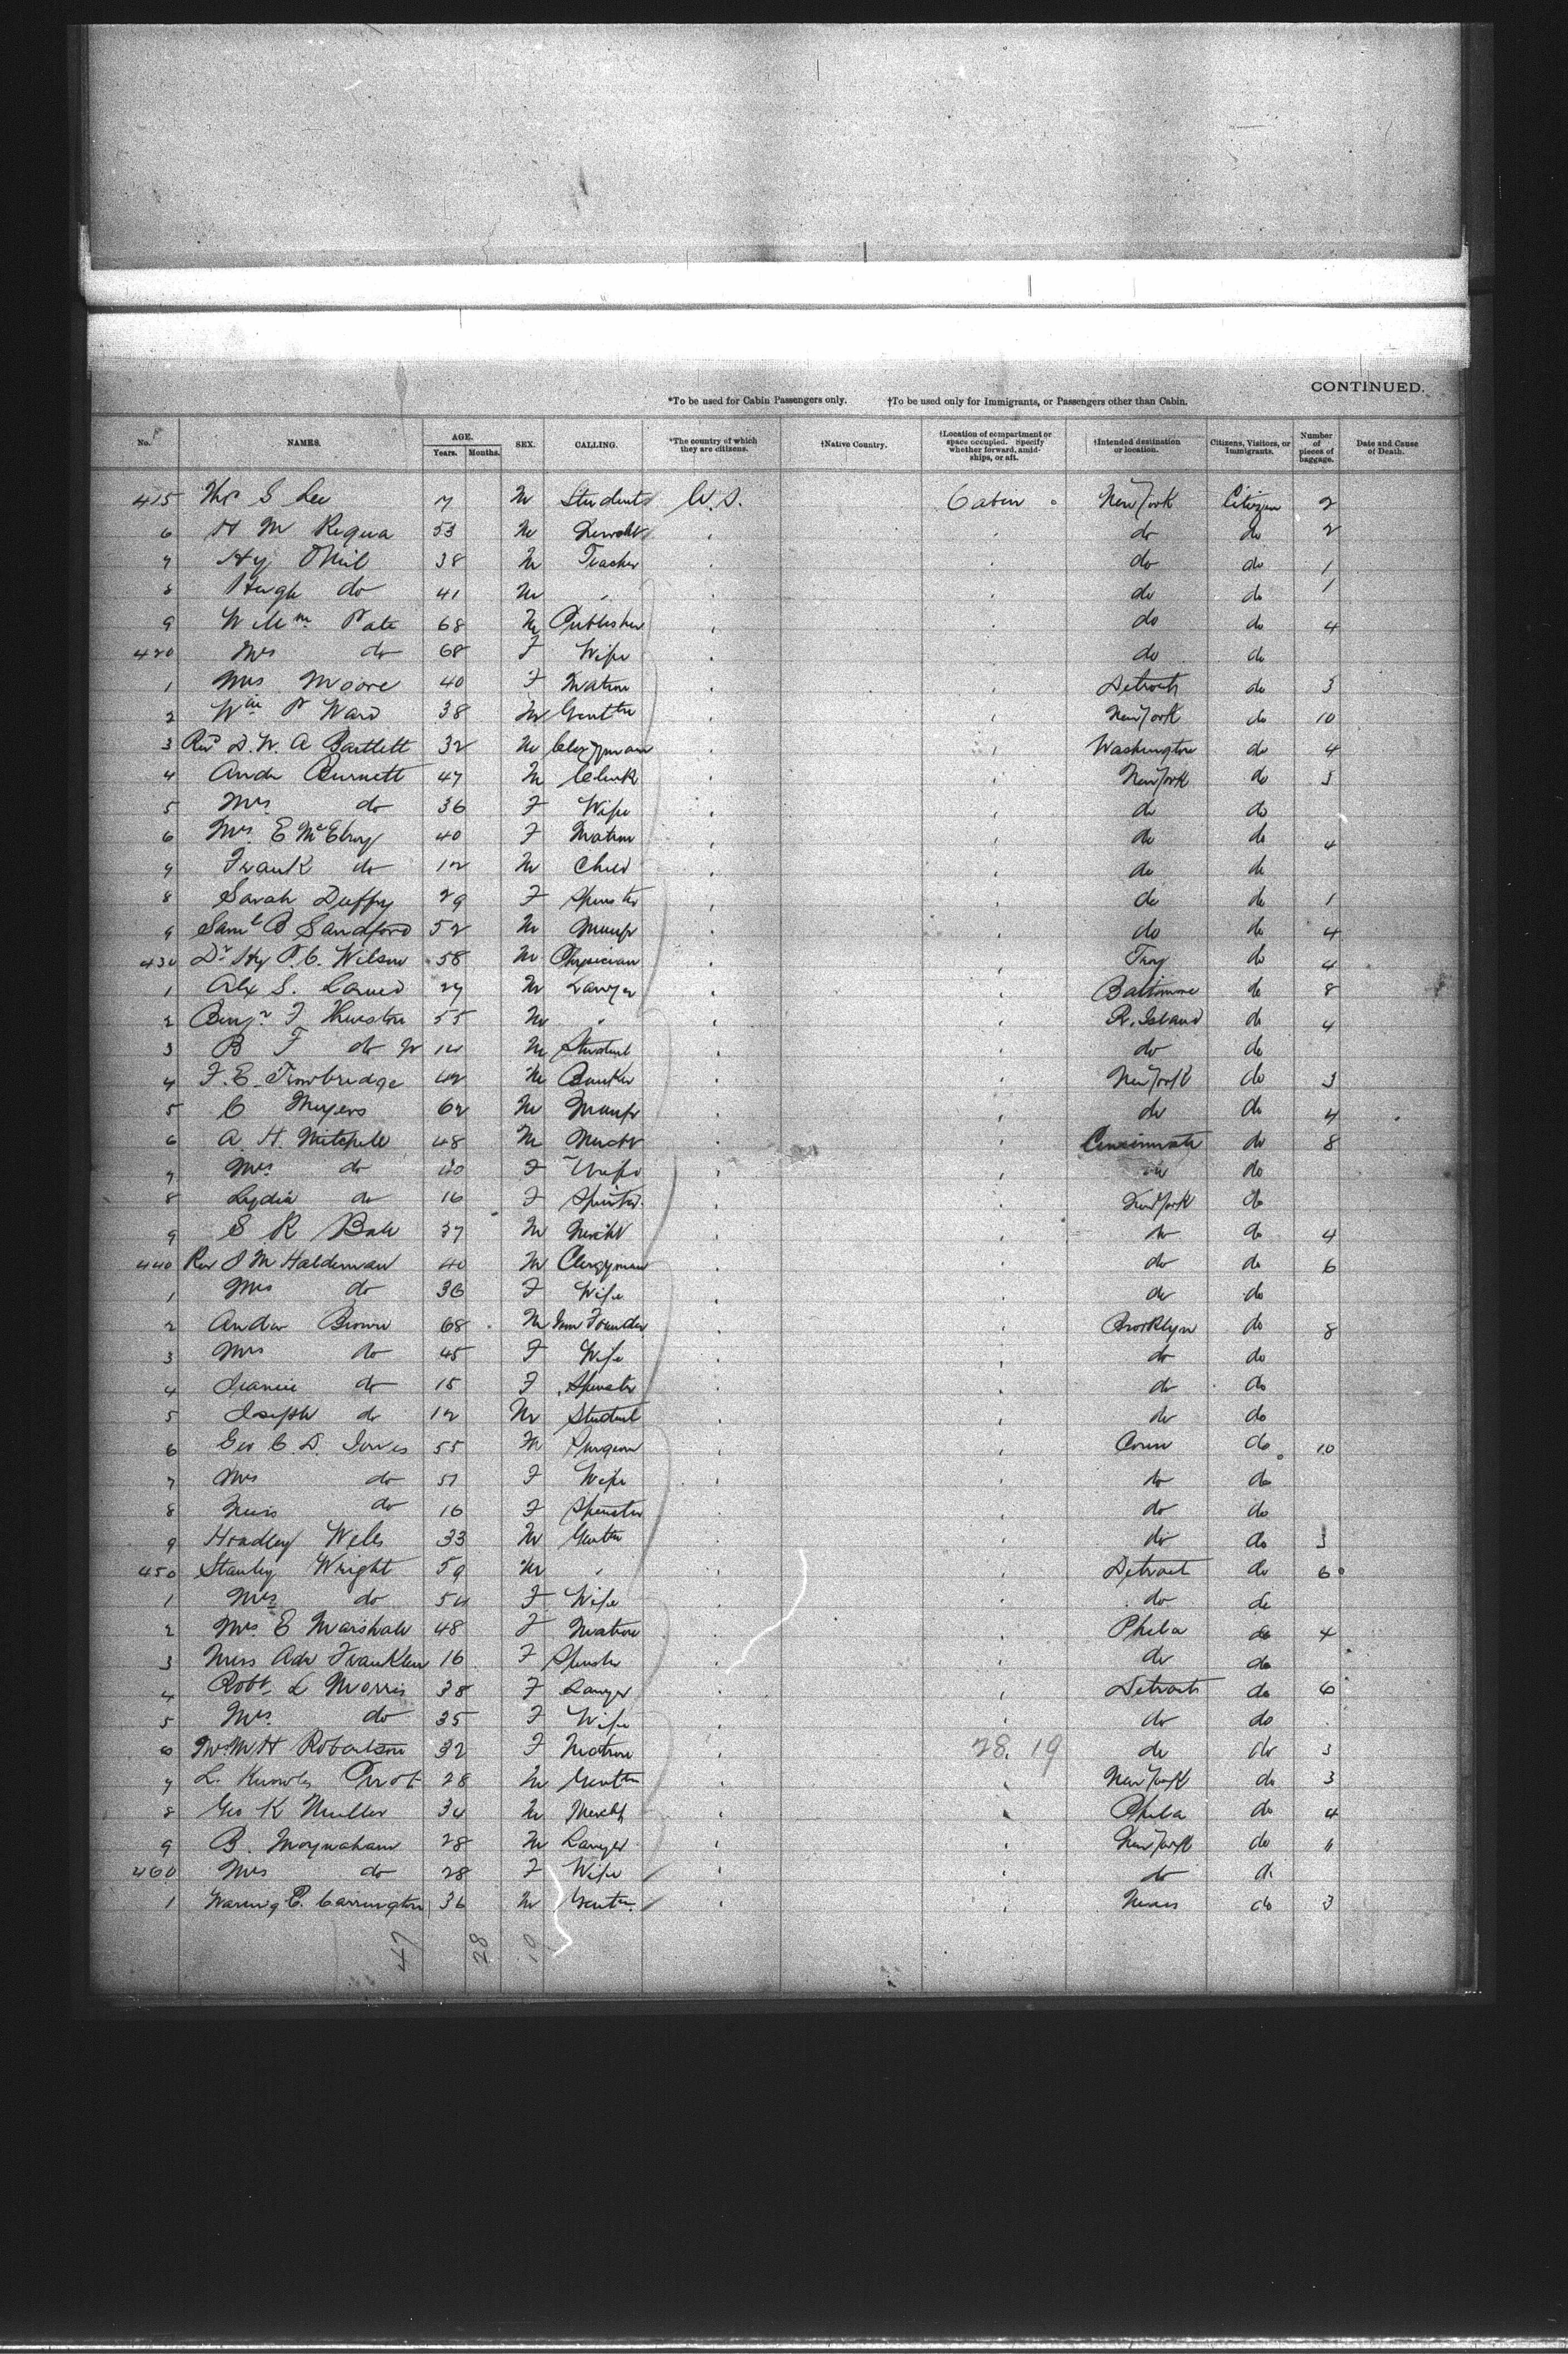 CONTINUED.
*To be used for Cabin Passengers only. †To be used only for Immigrants, or Passengers other than Cabin.
No. NAMES. AGE. Years. Months. SEX. CALLING. *The country of which they are citizens. †Native Country. †Location of compartment or space occupied. Specify whether forward, amidships, or aft. †Intended destination or location. Citizens, Visitors, or Immigrants. Number of pieces of baggage. Date and Cause of Death.
415 S Lee M Student U.S. Cabin New York Citizen 2
6 H M Requa 53 M do do 2
7 Hy ONeil 38 M Teacher do do 1
8 Hugh do 41 M " do do 1
9 Wllm Pate 68 M Publisher do do 4
420 Mrs do 68 F Wife do do
1 Mrs Moore 40 F Matron Detroit do 3
2 Wm P Ward 38 M Gentln New York do 10
3 Revd D. W. A Bartlett 32 M Clergyman Washington do 4
4 Andr Burnett 47 M Clerk New York do 3
5 Mrs do 36 F Wife do do
6 Mrs E McElroy 40 F Matron do do 4
7 Frank do 12 M Child do do
8 Sarah Duffy 29 F Spinster do do 1
9 Saml B Sandford 52 M Manfr do do 4
430 Dr Hy P. C. Wilson 58 M Physician Troy do 4
1 Alex S. 27 M Lawyer Baltimore do 8
2 Benjn F Thurston 55 M " R. Island do 4
3 B F do 14 M Student do do
4 F. E. Trowbridge 42 M Banker New York do 3
5 C Meyers 62 M Manfr do do 4
6 A. H. Mitchell 48 M Mercht Cincinnati do 8
7 Mrs do 40 F Wife do do
8 Lydia do 16 F Spinster New York do
9 S R Ball 37 M Mercht do do 4
440 Rev I M Haldeman 40 M Clergyman do do 6
1 Mrs do 36 F Wife do do
2 Andw Brown 68 M Iron Founder Brooklyn do 8
3 Mrs do 45 F Wife do do
4 Jeanie do 15 F Spinster do do
5 Joseph do 12 M Student do do
6 Geo C D. Jones 55 M Surgeon Conn do 10
7 Mrs do 51 F Wife do do
8 Miss do 16 F Spinster do do
9 Hoadley Wells 33 M Gentln do do 3
450 Stanley Wright 59 M " Detroit do 6
1 Mrs do 54 F Wife do do
2 Mrs E Marshall 48 F Matron Phila do 4
3 Miss Ada Franklin 16 F Spinster do do
4 Robt L Morris 38 F Lawyer Detroit do 6
5 Mrs do 35 F Wife do do
6 Mrs M H Robertson 32 F Matron 28 19 do do 3
7 L. Knowles Perot 28 M Gentln New York do 3
8 Geo K Muller 34 M Mercht Phila do 4
9 B. Moynahan 28 M Lawyer New York do 6
460 Mrs do 28 F Wife do do
1 Waring E. Carrington 36 M Gentn do 3
47 28 19